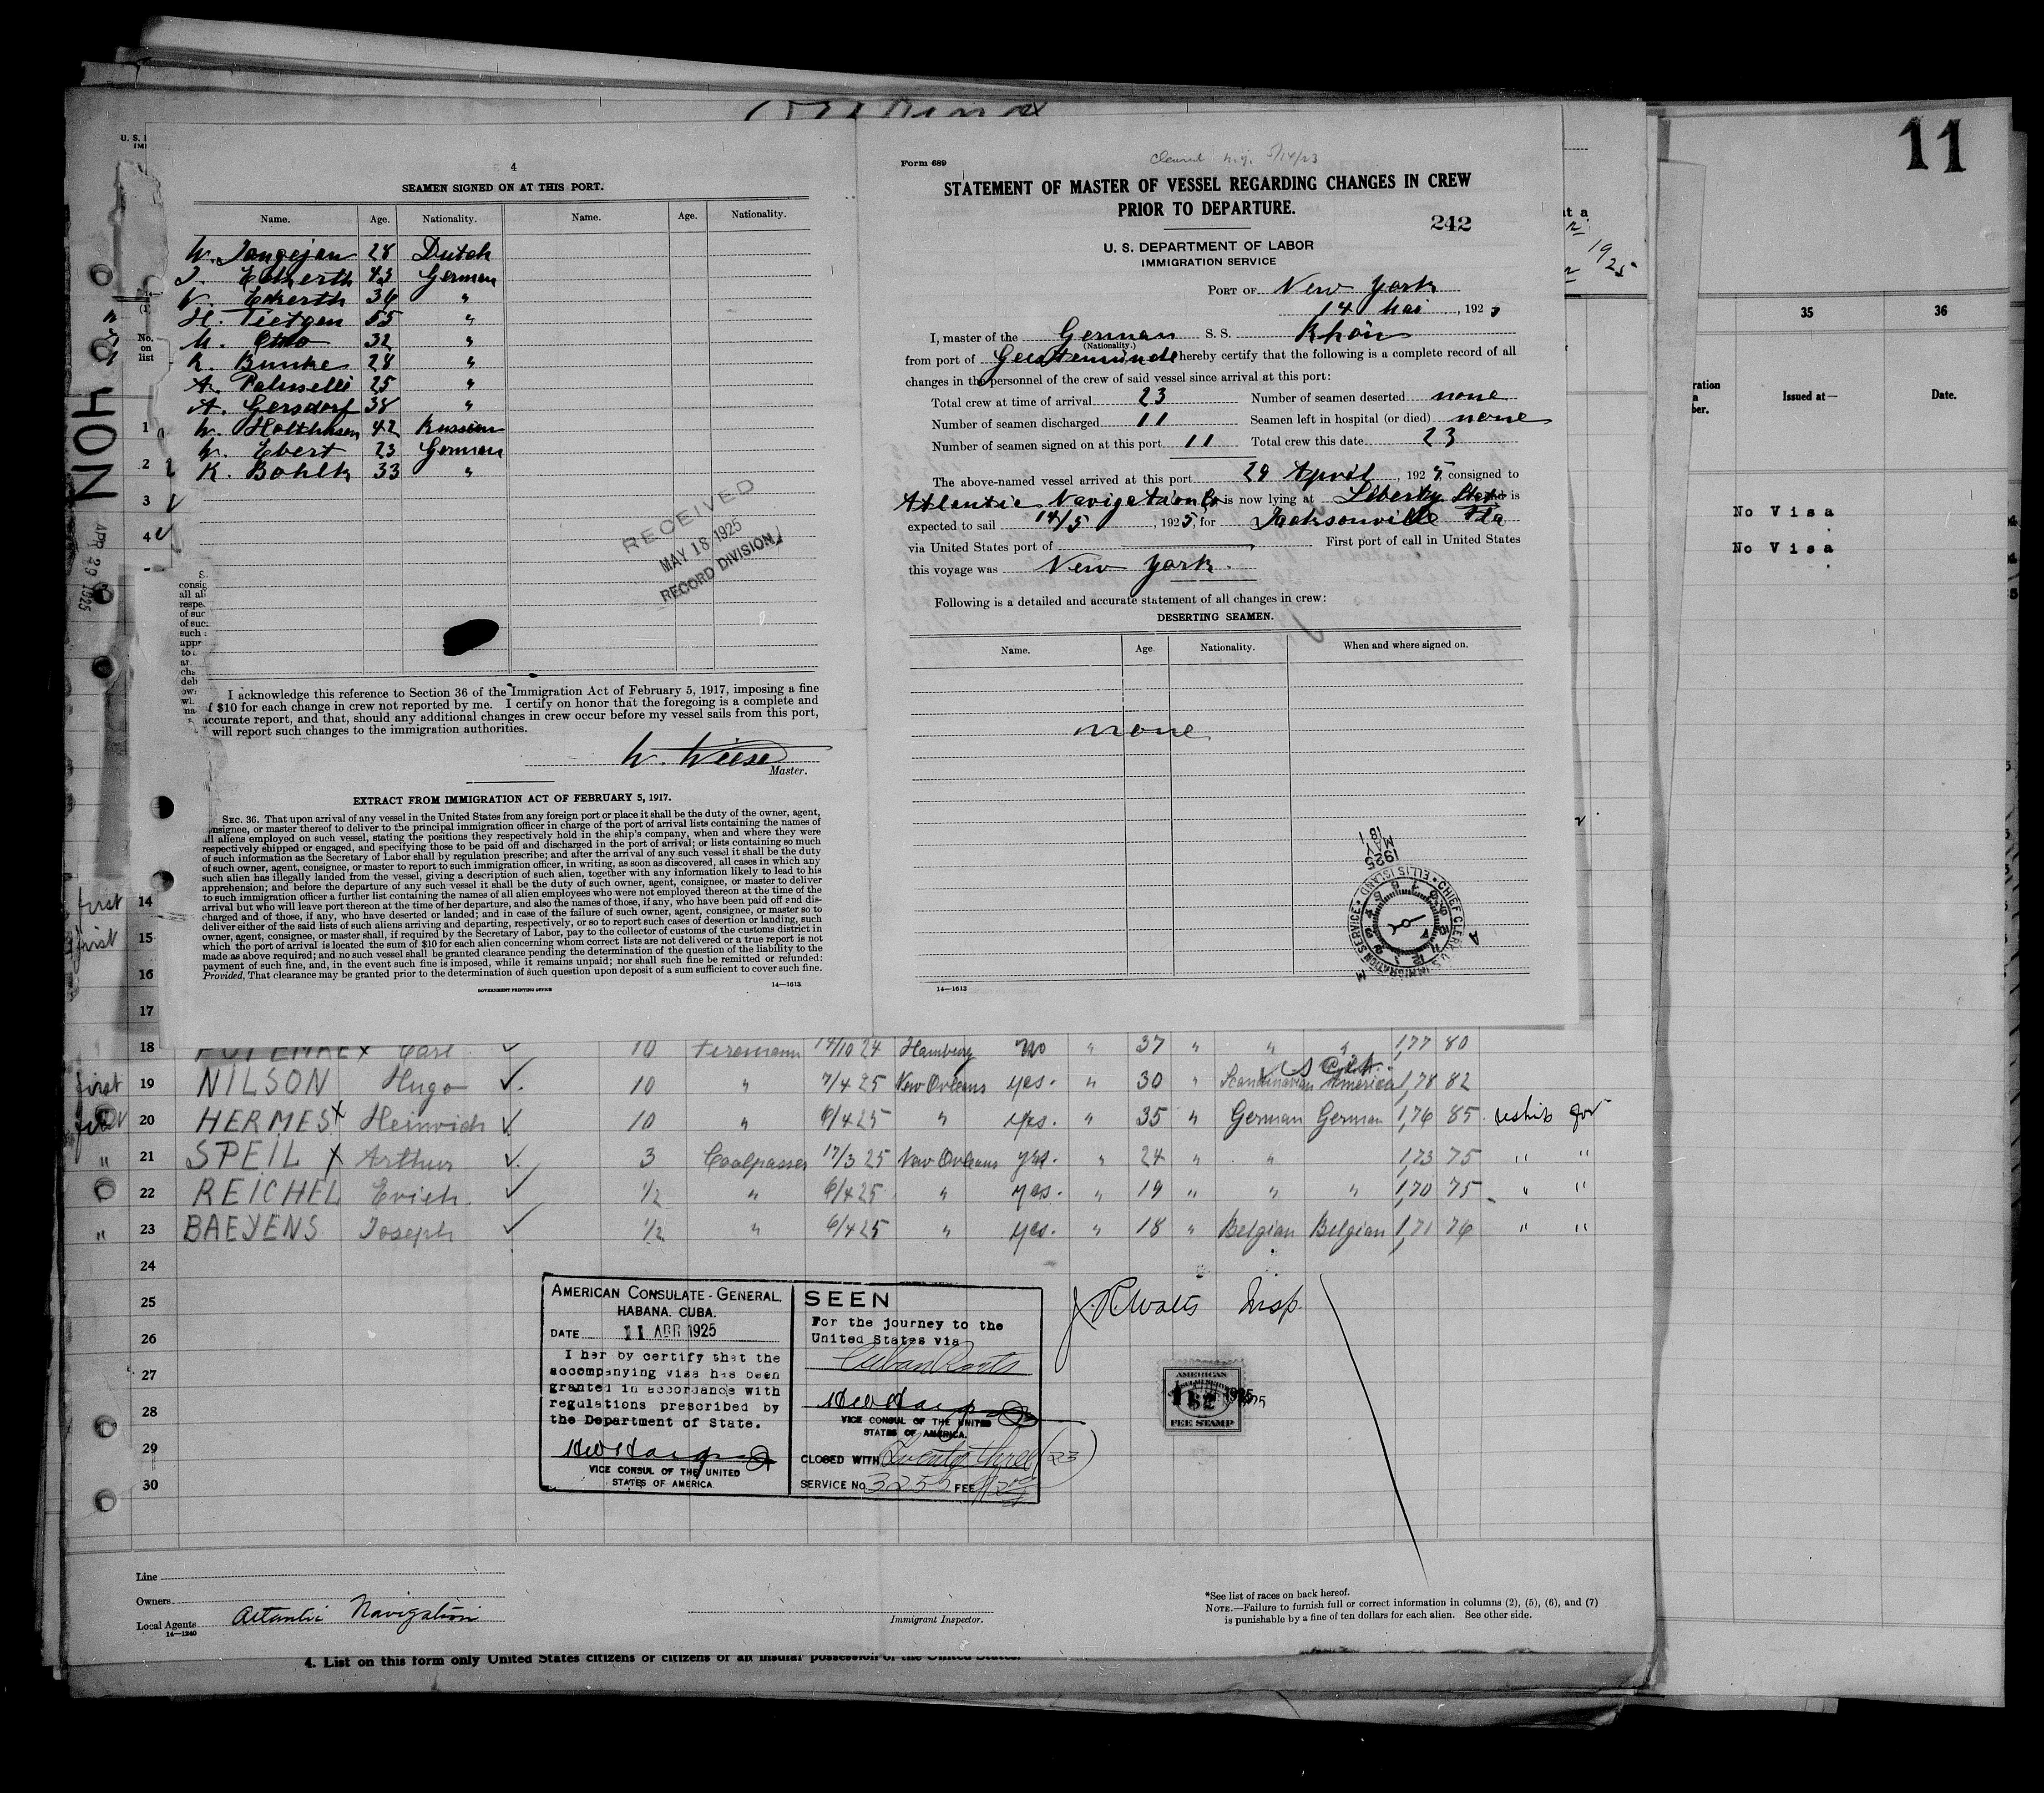 11
35 36
Issued at— Date.
No Visa
No Visa
4
SEAMEN SIGNED ON AT THIS PORT.
Name. Age. Nationality. Name. Age. Nationality.
28 Dutch
43 German
W. Ekerth 36 "
H. Tietgen 55 "
32 "
K. Bunke 28 "
A. 25 "
A. Gersdorf 38 "
W. Holthusen 42 Russian
W. Ebert 23 German
K. Bohlk 33 "
RECEIVED
MAY 18 1925
RECORD DIVISION
I acknowledge this reference to Section 36 of the Immigration Act of February 5, 1917, imposing a fine
of $10 for each change in crew not reported by me. I certify on honor that the foregoing is a complete and
accurate report, and that, should any additional changes in crew occur before my vessel sails from this port,
will report such changes to the immigration authorities.
W. Wiese
Master.
EXTRACT FROM IMMIGRATION ACT OF FEBRUARY 5, 1917.
SEC. 36. That upon arrival of any vessel in the United States from any foreign port or place it shall be the duty of the owner, agent,
consignee, or master thereof to deliver to the principal immigration officer in charge of the port of arrival lists containing the names of
all aliens employed on such vessel, stating the positions they respectively hold in the ship's company, when and where they were
respectively shipped or engaged, and specifying those to be paid off and discharged in the port of arrival; or lists containing so much
of such information as the Secretary of Labor shall by regulation prescribe; and after the arrival of any such vessel it shall be the duty
of such owner, agent, consignee, or master to report to such immigration officer, in writing, as soon as discovered, all cases in which any
such alien has illegally landed from the vessel, giving a description of such alien, together with any information likely to lead to his
apprehension; and before the departure of any such vessel it shall be the duty of such owner, agent, consignee, or master to deliver
to such immigration officer a further list containing the names of all alien employees who were not employed thereon at the time of the
arrival but who will leave port thereon at the time of her departure, and also the names of those, if any, who have been paid off and dis-
charged and of those, if any, who have deserted or landed; and in case of the failure of such owner, agent, consignee, or master so to
deliver either of the said lists of such aliens arriving and departing, respectively, or so to report such cases of desertion or landing, such
owner, agent, consignee, or master shall, if required by the Secretary of Labor, pay to the collector of customs of the customs district in
which the port of arrival is located the sum of $10 for each alien concerning whom correct lists are not delivered or a true report is not
made as above required; and no such vessel shall be granted clearance pending the determination of the question of the liability to the
payment of such fine, and, in the event such fine is imposed, while it remains unpaid; nor shall such fine be remitted or refunded:
Provided, That clearance may be granted prior to the determination of such question upon deposit of a sum sufficient to cover such fine.
GOVERNMENT PRINTING OFFICE 14—1613
Form 689
Cleared N.Y. 5/14/23
STATEMENT OF MASTER OF VESSEL REGARDING CHANGES IN CREW
PRIOR TO DEPARTURE.
242
U. S. DEPARTMENT OF LABOR
IMMIGRATION SERVICE
PORT OF New York
14 Mai, 192
I, master of the German S. S. Rhön
(Nationality.)
from port of Geestemünde hereby certify that the following is a complete record of all
changes in the personnel of the crew of said vessel since arrival at this port:
Total crew at time of arrival 23 Number of seamen deserted none
Number of seamen discharged 11 Seamen left in hospital (or died) none
Number of seamen signed on at this port 11 Total crew this date 23
The above-named vessel arrived at this port 29 April, 1925, consigned to
Atlantic Navigation Co is now lying at Liberty and is
expected to sail 14/5, 1925, for Jacksonville Fla
via United States port of First port of call in United States
this voyage was New York.
Following is a detailed and accurate statement of all changes in crew:
DESERTING SEAMEN.
Name. Age. Nationality. When and where signed on.
none
1925
MAY 18
CHIEF CLERK U.S. IMMIGRATION SERVICE ELLIS ISLAND
14—1613
No.
on
list
APR 29 1925
1
2
3
4
first 14
first 15
16
17
18 Carl 10 Firemann 14/10 24 Hamburg no " 37 " " " 1,77 80
U S Cit.
first 19 NILSON Hugo 10 " 7/4 25 New Orleans yes. " 30 " Scandinavian America 1,78 82
20 HERMES x Heinrich 10 " 6/4 25 " yes. " 35 " German German 1,76 85 reship for
" 21 SPEIL x Arthur 3 Coalpasser 17/3 25 New Orleans yes. " 24 " " 1,73 75 " "
22 REICHEL Erich 1/2 " 6/4 25 " yes. " 19 " " " 1,70 75 " "
" 23 BAEYENS Joseph 1/2 " 6/4 25 " yes. " 18 " Belgian Belgian 1,71 76 " "
24
25
26
27
28
29
30
AMERICAN CONSULATE-GENERAL,
HABANA, CUBA.
DATE 11 APR 1925
I her by certify that the
accompanying visa has been
granted in accordance with
regulations prescribed by
the Department of State.
VICE CONSUL OF THE UNITED
STATES OF AMERICA
SEEN
For the journey to the
United States via
Cuban Ports
VICE CONSUL OF THE UNITED
STATES OF AMERICA.
CLOSED WITH Twenty three (23)
SERVICE No. 3255 FEE
J. R. Watts Insp.
AMERICAN
FEE STAMP
Line
Owners
Local Agents Atlantic Navigation
14—1240
Immigrant Inspector.
*See list of races on back hereof.
NOTE.—Failure to furnish full or correct information in columns (2), (5), (6), and (7)
is punishable by a fine of ten dollars for each alien. See other side.
4. List on this form only United States citizens or citizens of an insular possession of the United States.